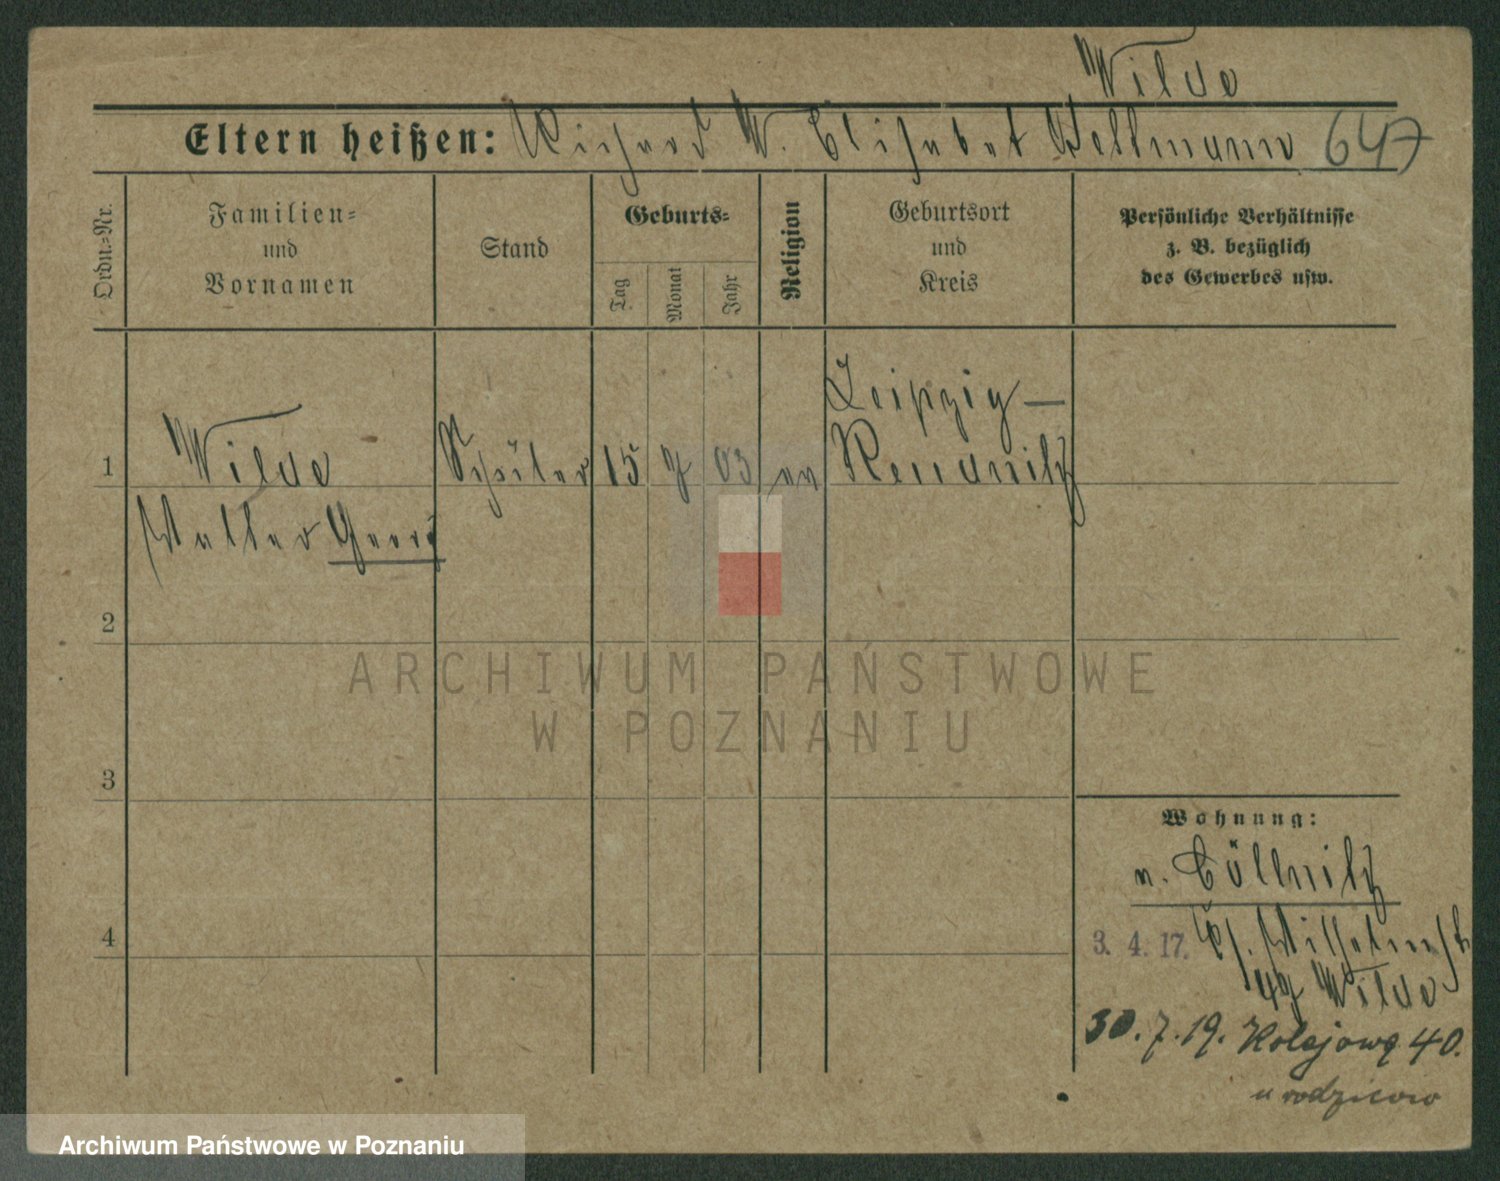 Wilde
Eltern heißen: Richard W. Elisabet Hellmann 647
Ordn.=Nr.
Familien=
und
Vornamen
Stand
Geburts=
Tag
Monat
Jahr
Religion
Geburtsort
und
Kreis
Persönliche Verhältnisse
z. B. bezüglich
des Gewerbes usw.
Leipzig —
1 Wilde Schüler 15 7 03 ev Reudnitz
Walter Georg
2
3
4
Wohnung:
v. Cöllnitz
3. 4. 17. Wilhelmstr
47 Wilde
30. 7. 19. Kolejowa 40.
u rodziców
ARCHIWUM PAŃSTWOWE
W POZNANIU
Archiwum Państwowe w Poznaniu